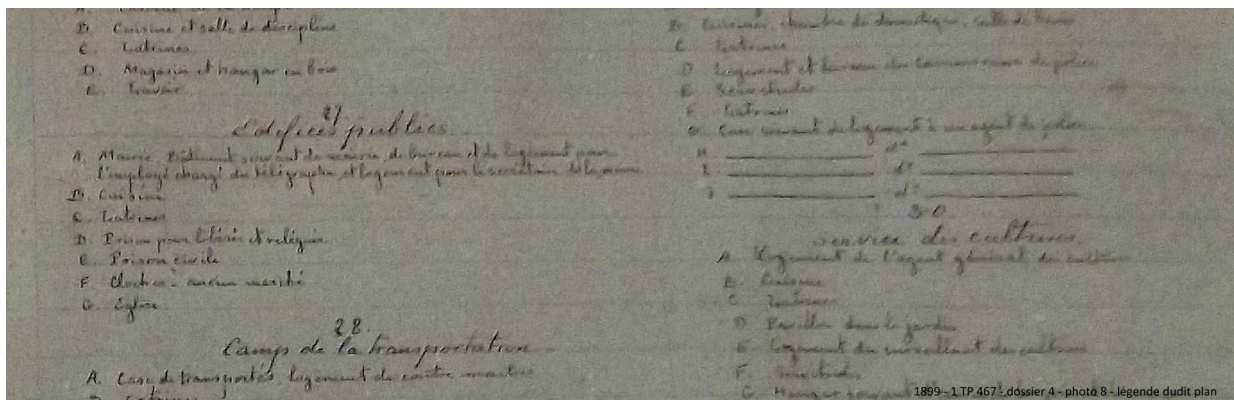 B. Cuisine et salle de discipline
C. Latrines
D. Magasin et hangar en bois
E. Lavoir
27
Edifices publics
A. Mairie Bâtiment servant de mairie, de bureau et de logement pour
l'employé chargé du télégraphe, et logement pour le secrétaire de la mairie
B. Cuisine
C. Latrines
D. Prison pour libérés et relégués
E. Prison civile
F. Cloches - ancien marché
G. Eglise
28.
Camp de la transportation
A. Case de transportés, logement de contre maitre
B. Cuisine, chambre de domestique, salle de bains
C. Latrines
D. Logement et bureau du commissaire de police
E. Servitudes
F. Latrines
G. Case servant de logement à un agent de police
H. d°
I. d°
J. d°
30
Service des cultures
A. Logement de l'agent général des cultures
B. Cuisine
C. Latrines
D. Pavillon dans le jardin
E. Logement du surveillant des cultures
F. Servitudes
G. Hangar servant
1899 - 1 TP 467 - dossier 4 - photo 8 - légende dudit plan